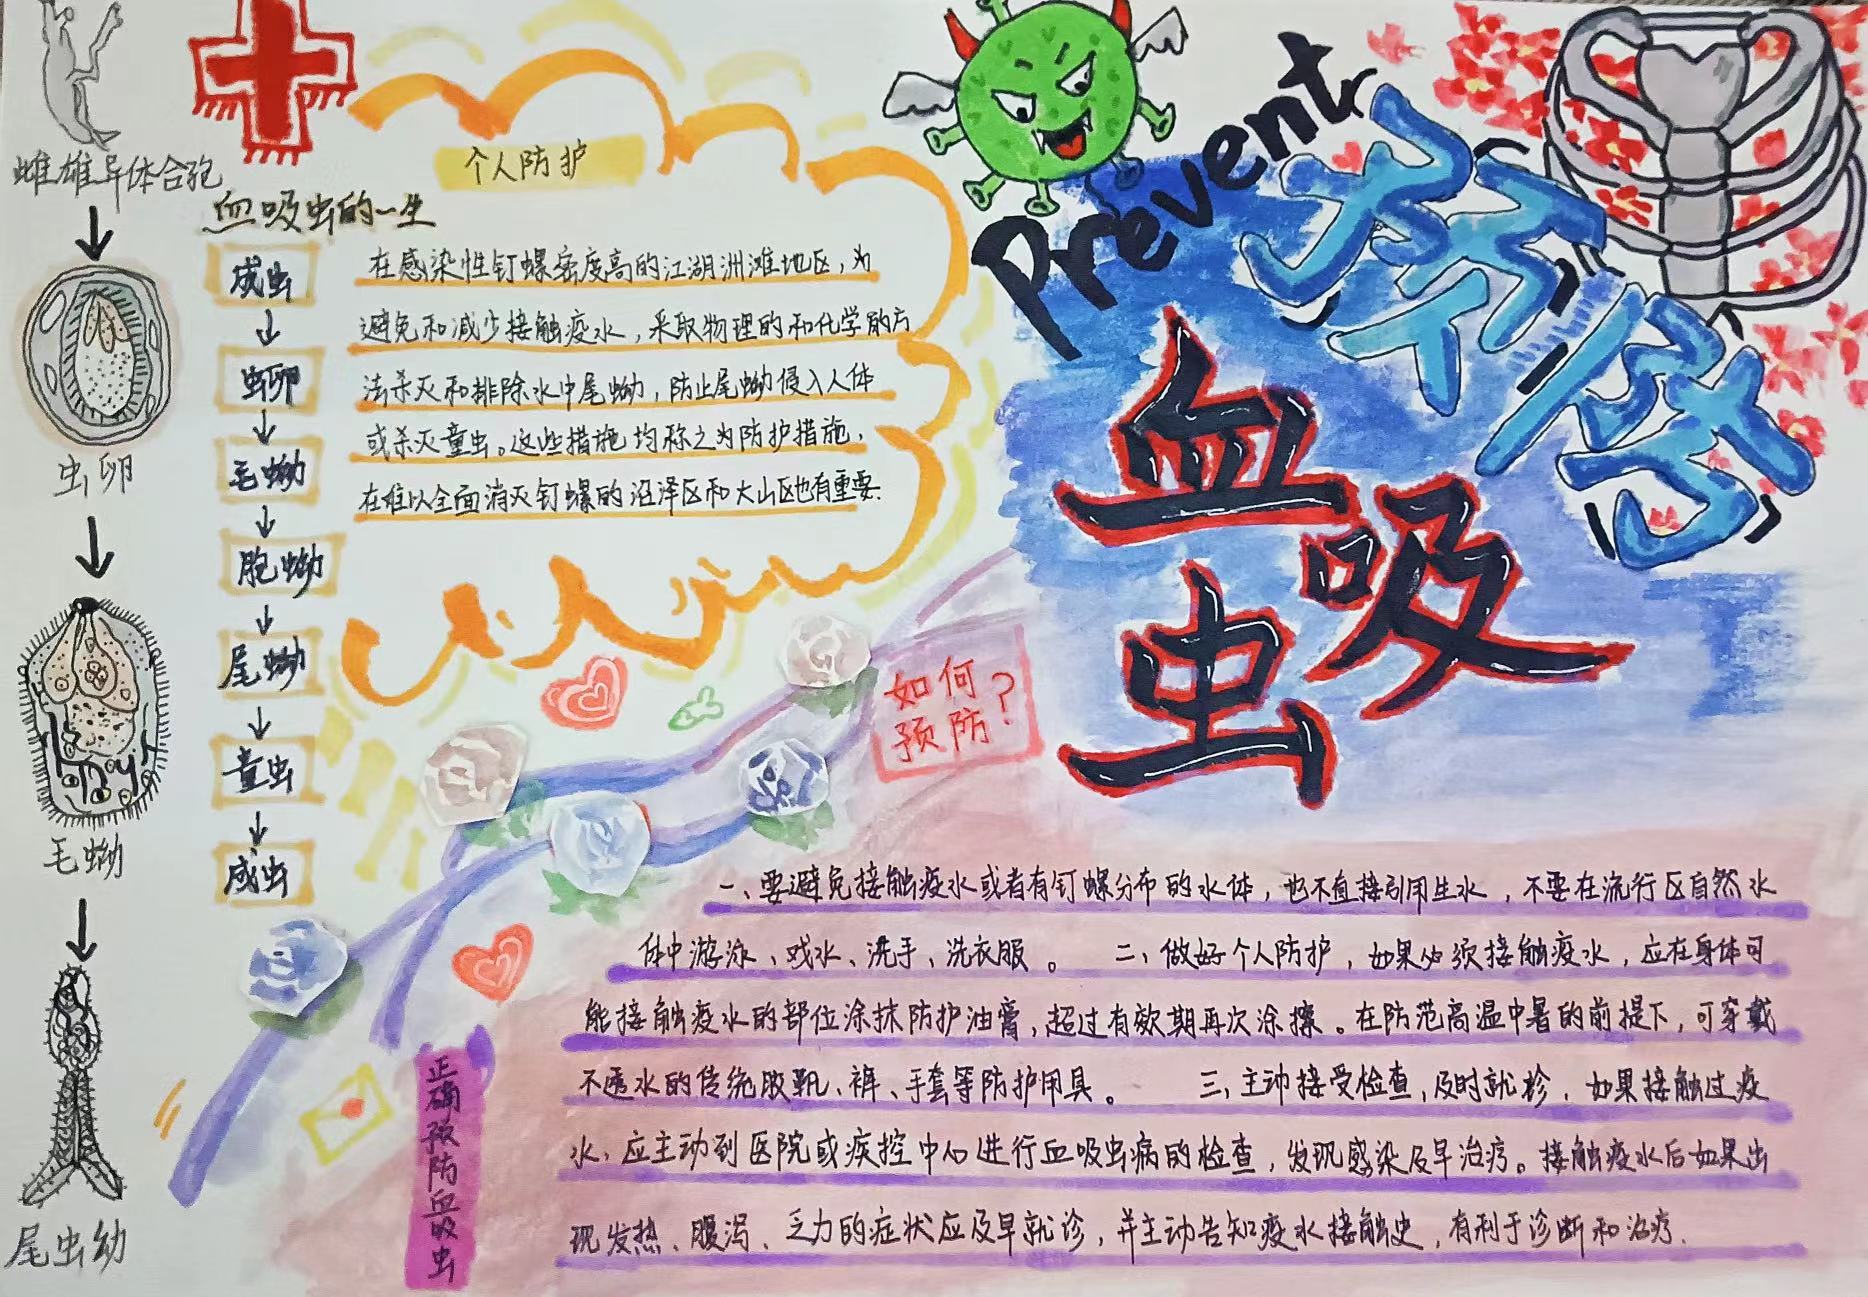 Prevent
预防
血吸
虫
雌雄异体合孢
虫卵
毛蚴
尾虫幼
血吸虫的一生
成虫
虫卵
毛蚴
胞蚴
尾蚴
童虫
成虫
个人防护
在感染性钉螺密度高的江湖洲滩地区，为
避免和减少接触疫水，采取物理的和化学的方
法杀灭和排除水中尾蚴，防止尾蚴侵入人体
或杀灭童虫。这些措施均称之为防护措施，
在难以全面消灭钉螺的沼泽区和大山区也有重要.
如何
预防？
一、要避免接触疫水或者有钉螺分布的水体，也不直接引用生水，不要在流行区自然水
体中游泳、戏水、洗手、洗衣服。 二、做好个人防护，如果必须接触疫水，应在身体可
能接触疫水的部位涂抹防护油膏，超过有效期再次涂擦。在防范高温中暑的前提下，可穿戴
不透水的传统胶靴、裤、手套等防护用具。 三、主动接受检查，及时就诊，如果接触过疫
水，应主动到医院或疾控中心进行血吸虫病的检查，发现感染及早治疗。接触疫水后如果出
现发热、腹泻、乏力的症状应及早就诊，并主动告知疫水接触史，有利于诊断和治疗.
正确预防血吸虫